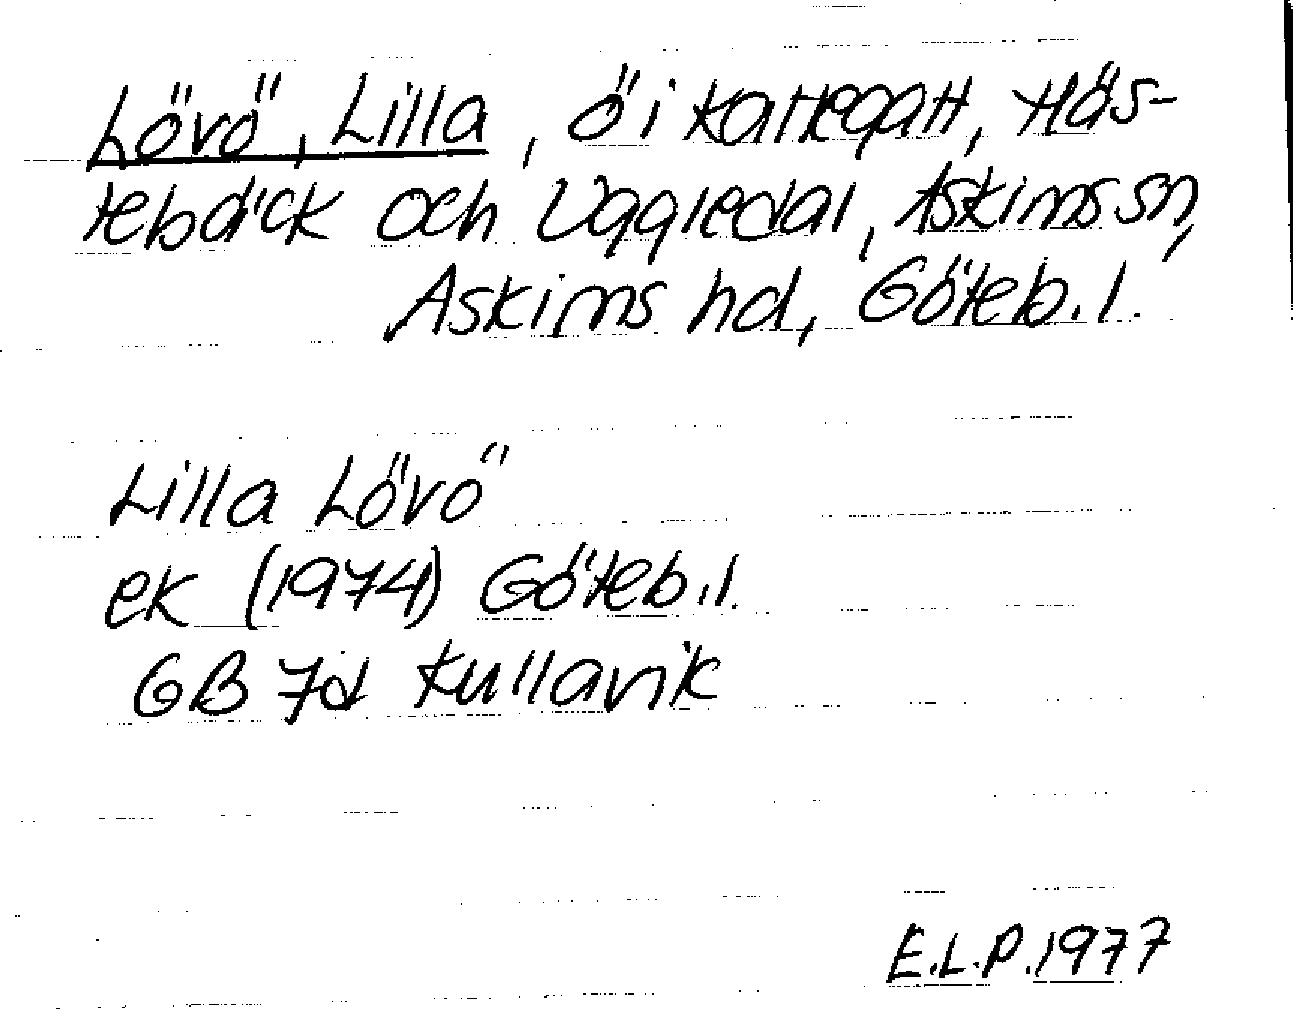 Lövö, Lilla, ö i Kattegatt, Häs-
tebäck och Uggledal, Askims sn,
Askims hd, Göteb. l.
Lilla Lövö
ek (1974) Göteb. l.
GB 7d Kullavik
E.L.P. 1977